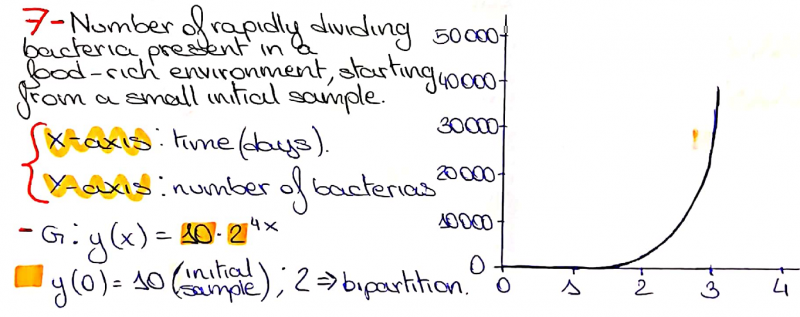 7-Number of rapidly dividing
bacteria present in a
food-rich environment, starting
from a small initial sample.
x-axis: time (days).
Y-axis: number of bacterias
- G: y(x) = 10 · 2^4x
y(0) = 10 (initial sample); 2 ⇒ bipartition.
50000
40000
30000
20000
10000
0
0 1 2 3 4